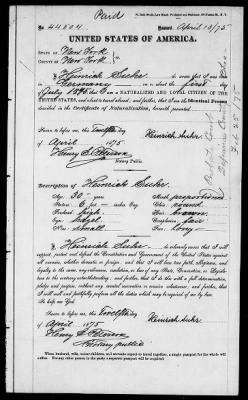 Paid
No. 44504. Issued April 13/75
UNITED STATES OF AMERICA.
STATE OF New York
COUNTY OF New York
I, Heinrich Suhr, do swear that I was born in
Germany on the first day of
July 1845; that I am a NATURALIZED AND LOYAL CITIZEN OF THE
UNITED STATES, and about to travel abroad; and further, that I am the Identical Person
described in the Certificate of Naturalization, herewith presented.
Sworn to before me, this Twelfth day
of April 1875
Heinrich Suhr
Henry S.
Notary Public
Description of Heinrich Suhr
Age: 30 years
Mouth: proportioned
Stature: feet inches Eng.
Chin: round
Forehead: high
Hair: brown
Eyes: hazel
Complexion: fair
Nose: small
Face: long
I, Heinrich Suhr, do solemnly swear that I will
support, protect and defend the Constitution and Government of the United States against
all enemies, whether domestic or foreign; and that I will bear true faith, allegiance, and
loyalty to the same, any ordinance, resolution or law of any State, Convention, or Legisla-
ture to the contrary notwithstanding; and further, that I do this with a full determination,
pledge and purpose, without any mental reservation or evasion whatsoever; and further, that
I will well and faithfully perform all the duties which may be required of me by law.
So help me God.
Sworn to before me, this twelfth day
of April 1875
Heinrich Suhr
Henry S.
Notary public
When husband, wife, minor children, and servants expect to travel together, a single passport for the whole will
suffice. For any other person in the party a separate passport will be required.